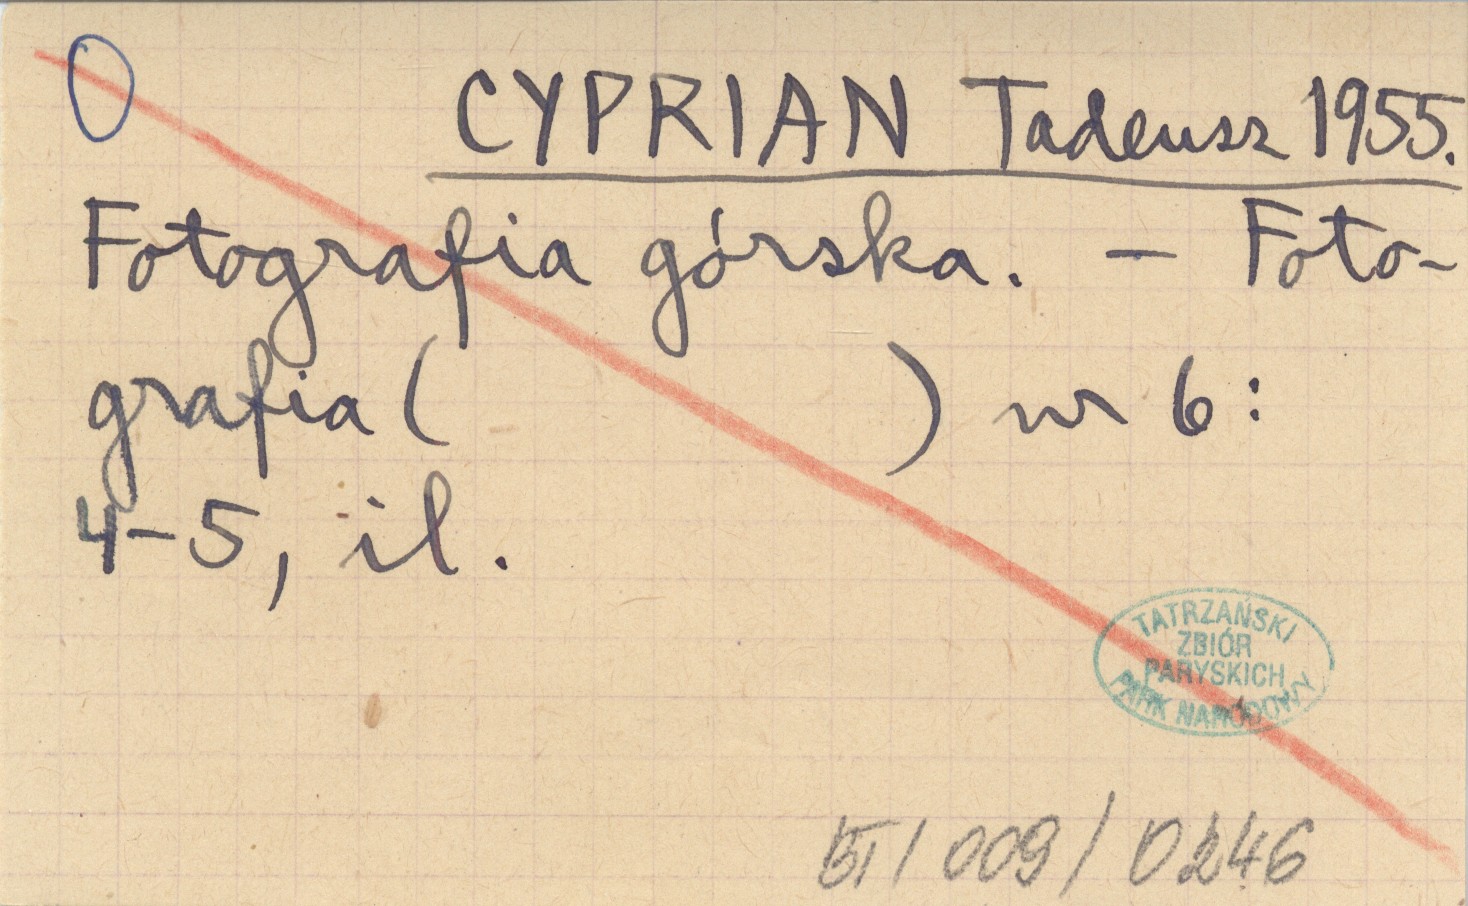 CYPRIAN Tadeusz 1955.
Fotografia górska. – Foto-
grafia ( ) nr 6:
4–5, il.
TATRZAŃSKI
ZBIÓR
PARYSKICH
PARK NARODOWY
009/0246